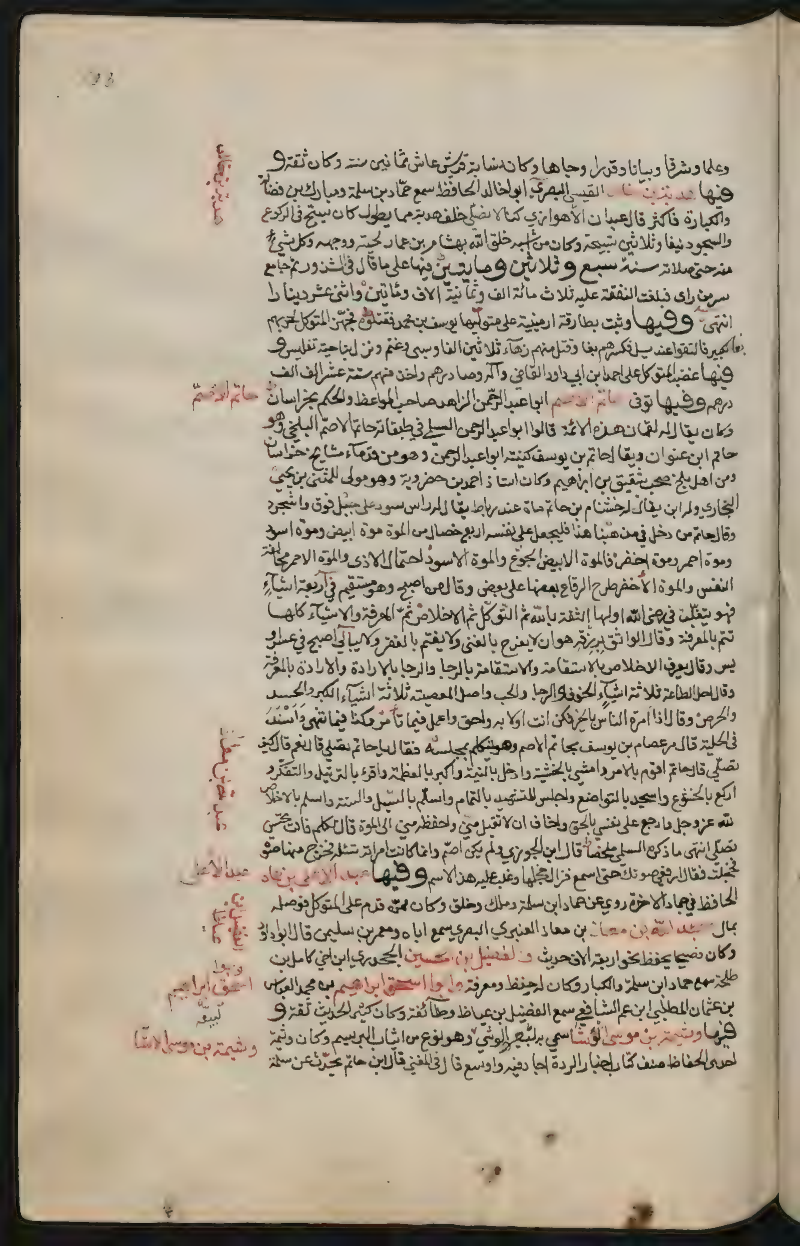 وعلما وشرفا وبيانا وقدرا وجاها وكان نسابة قريش عاش ثمانين سنة وكان ثقة و
فيها هدبة بن خالد القيسي البصري ابو خالد الحافظ سمع حماد بن سلمة ومبارك بن فضالة
والكبار فاكثر قال عبدان الاهوازي كنا لا نصلي خلف هدبة مما يطول كان يسبح في الركوع
والسجود نيفا وثلاثين تسبيحة وكان من اشبه خلق الله بهشام بن عمار لحيته ووجهه وكل شيء
منه حتى صلاته سنة سبع وثلاثين ومايتين فيها على ما قال في الشذور تم جامع
سر من راى فبلغت النفقة عليه ثلاث مائة الف وثمانية الاف ومئاتين واثنى عشر دينارا
انتهى وفيها وثبت بطارقة ارمينية على متوليها يوسف بن محمد فقتلوه فجهز المتوكل لحربهم
بغا الكبير فالتقوا عند فكسرهم بغا وقتل منهم زهاء ثلاثين الفا وسبى وغنم ونزل بناحية تفليس و
فيها غضب المتوكل على احمد ابن ابي داود القاضي وآله وصادرهم واخذ منهم ستة عشر الف الف
درهم وفيها توفى حاتم الاصم ابو عبد الرحمن الزاهد صاحب المواعظ والحكم بخراسان
وكان يقال له لقمان هذه الامة قال ابو عبد الرحمن السلمي في طبقاته حاتم الاصم البلخي وهو
حاتم ابن عنوان ويقال حاتم بن يوسف كنيته ابو عبد الرحمن وهو من قدماء مشايخ خراسان
ومن اهل بلخ صحب شقيق بن ابراهيم وكان استاذ احمد بن خضروية وهو مولى للمثنى بن يحيى
المحاربي وله ابن يقال له خشنام بن حاتم مات عند رباط يقال له راس سرود على جبل فوق واشجرد
وقال حاتم من دخل في مذهبنا هذا فليجعل على نفسه اربع خصال من الموت موة ابيض وموة اسود
وموة احمر وموة اخضر فالموة الابيض الجوع والموة الاسود احتمال الاذى والموة الاحمر مخالفة
النفس والموة الاخضر طرح الرقاع بعضها على بعض وقال من اصبح وهو مستقيم في اربعة اشياء
فهو يتقلب في رضى الله اولها الثقة بالله ثم التوكل ثم الاخلاص ثم المعرفة والاشياء كلها
تتم بالمعرفة وقال الواثق برزقه هو ان لا يفرح بالغنى ولا يغتم بالفقر ولا يبالي اصبح في عسر او
يسر وقال يعرف الاخلاص بالاستقامة والاستقامة بالرجا والرجا بالارادة والارادة بالمعرفة
وقال اصل الطاعة ثلاثة اشياء الخوف والرجا والحب واصل المعصية ثلاثة اشياء الكبر والحسد
والحرص وقال اذا امرت الناس بالخير فكن انت اولا به واحق واعمل فيما تأمر وكذا فيما تنهى واسند
في الحلية قال مر عصام بن يوسف بحاتم الاصم وهو يتكلم بمجلسه فقال يا حاتم تصلي قال نعم قال كيف
تصلي قال حاتم اقوم بالامر وامشي بالخشية وادخل بالنية واكبر بالعظمة واقرء بالترتيل والتفكر و
اركع بالخشوع واسجد بالتواضع واجلس للتشهد بالتمام واسلم بالسبل والسنة واسلم بالاخلاص
لله عز وجل وارجع على نفسي بالخوف واخاف ان لا تقبل مني واحفظه مني الى الموة قال تكلم فانت تحسن
تصلي انتهى ما ذكره السلمي ملخصا قال ابن الجوزي ولم يكن اصم وانما كانت امراة تسئله فخرج منها صوت
فخجلت فقال ارفعي صوتك حتى اسمع فزال خجلها وغلب عليه هذا الاسم وفيها عبد الاعلى بن حماد
الحافظ في جماد الاخرة روى عن حماد ابن سلمة ومالك وخلق وكان ممن قدم على المتوكل فوصله
بمال عبيد الله بن معاذ بن معاد العنبري البصري سمع اباه ومعمر بن سليمن قال ابو داود
وكان فصيحا يحفظ نحو اربعة الاف حديث والفضيل بن حسين الجحدري ابن اخي كامل بن
طلحة سمع حماد ابن سلمة والكبار وكان له حفظ ومعرفة وابو اسحق ابراهيم بن محمد العباس
بن عثمان المطلبي ابن عم الشافعي سمع الفضيل بن عياض وطائفة وكان كثير الحديث ثقة و
فيها وشيمة بن موسى الوشا سمي به لبيعه الوشي وهو نوع من الثياب الابريسم وكان وثيمة
احدى الحفاظ صنف كتاب اخبار الردة اجاد فيه واوسع قال في المغني قال ابن حاتم يحدث عن سلمة
هدبة بن خالد
حاتم الاصم
عبد الاعلى
وابو
اسحق ابراهيم
وشيمة بن موسى الوشا